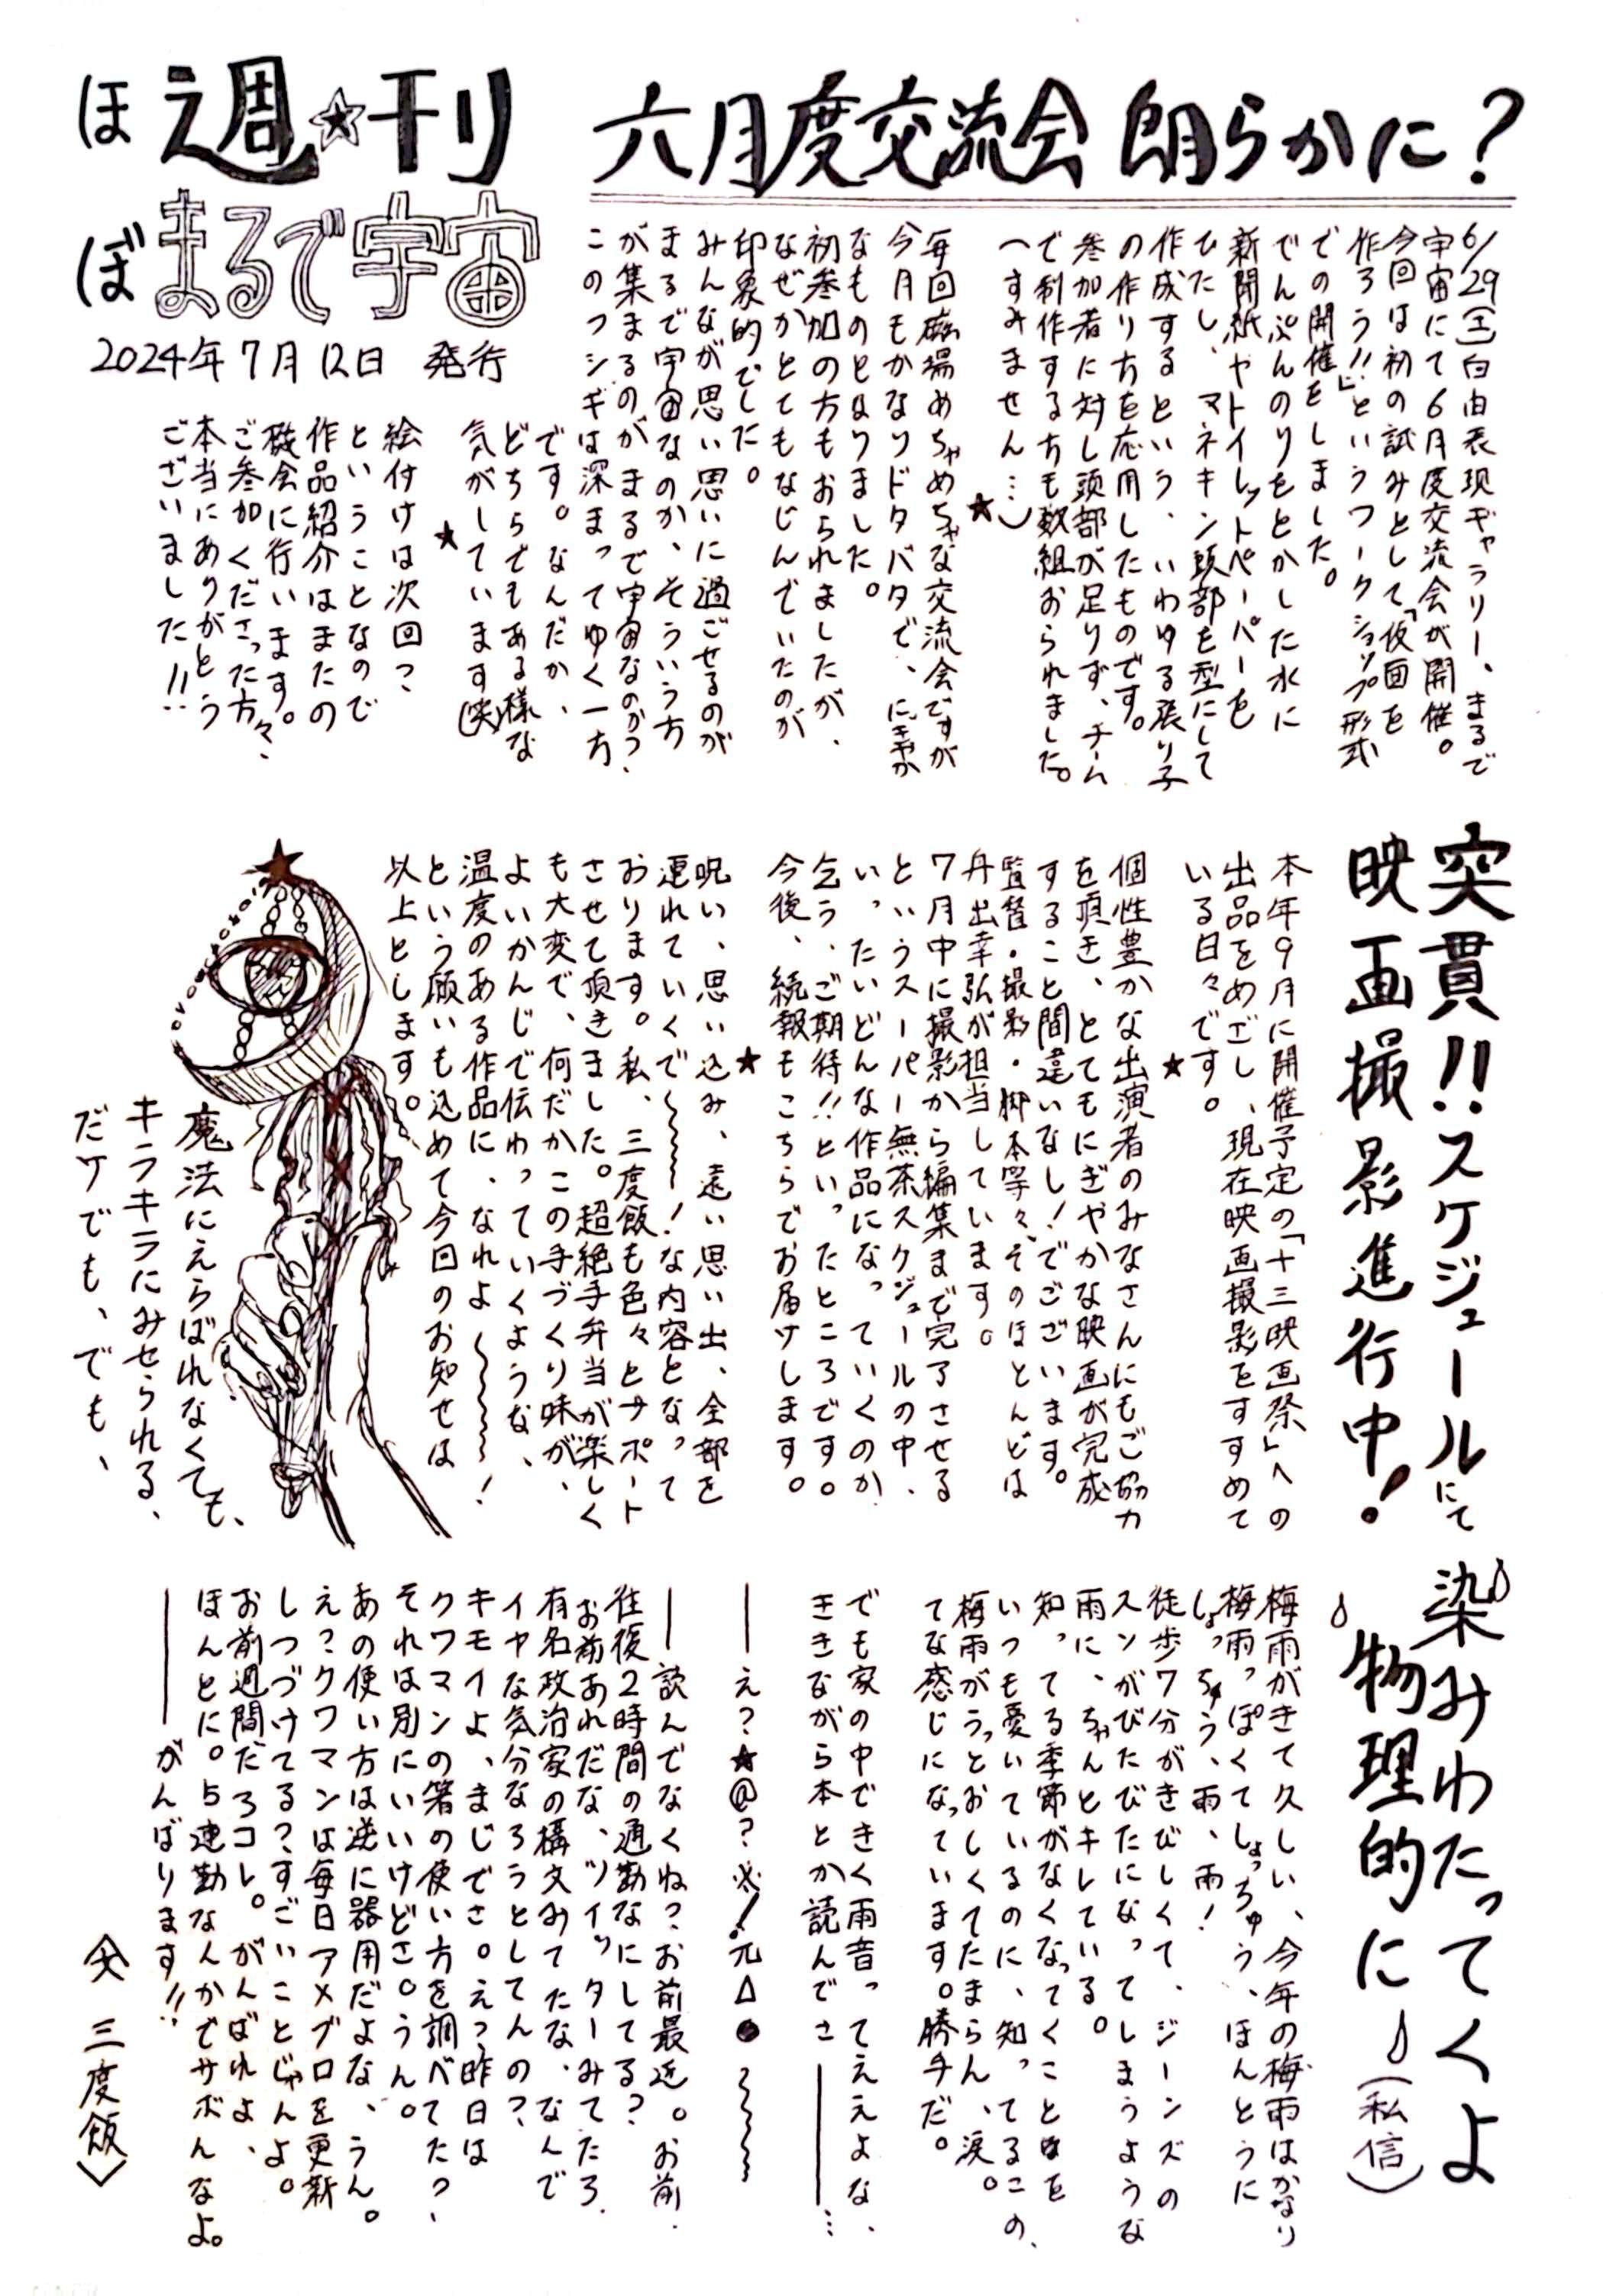 ほぼ
週☆刊
まるで宇宙
2024年7月12日 発行
六月度交流会 朗らかに?
6/29(土)自由表現ギャラリー、まるで
宇宙にて6月度交流会が開催。
今回は初の試みとして「仮面を
作ろう!!」というワークショップ形式
での開催をしました。
でんぷんのりをとかした水に
新聞紙やトイレットペーパーを
ひたし、マネキン頭部を型にして
作成するという、いわゆる張り子
の作り方を応用したものです。
参加者に対し頭部が足りず、チーム
で制作する方も数組おられました。
(すみません…)
★
毎回磁場めちゃめちゃな交流会ですが
今月もかなりドタバタで、にぎやか
なものとなりました。
初参加の方もおられましたが、
なぜかとてもなじんでいたのが
印象的でした。
みんなが思い思いに過ごせるのが
まるで宇宙なのか、そういう方
が集まるのがまるで宇宙なのか?
このフシギは深まってゆく一方
です。なんだか、
どちらでもある様な
気がしています(英)
★
絵付けは次回?
ということなので
作品紹介はまたの
機会に行います。
ご参加くださった方々、
本当にありがとう
ございました!!
突貫!!スケジュールにて
映画撮影進行中!
本年9月に開催予定の「十三映画祭」への
出品をめざし、現在映画撮影をすすめて
いる日々です。
★
個性豊かな出演者のみなさんにもご協力
を頂き、とてもにぎやかな映画が完成
すること間違いなし!でございます。
監督・撮影・脚本等々、そのほとんどは
丹出幸弘が担当しています。
7月中に撮影から編集まで完了させる
というスーパー無茶スケジュールの中、
いったいどんな作品になっていくのか
乞う、ご期待!!といったところです。
今後、続報もこちらでお届けします。
★
呪い、思い込み、遠い思い出、全部を
連れていくで〜〜〜!な内容となって
おります。私、三度飯も色々とサポート
させて頂きました。超絶手弁当が楽しく
も大変で、何だかこの手づくり味が、
よいかんじで伝わっていくような、
温度のある作品に、なれよ〜〜〜〜!
という願いも込めて今回のお知せは
以上とします。
魔法にえらばれなくても、
キラキラにみせられる、
だケでも、でも、
染みわたってくよ
物理的に(私信)
梅雨がきて久しい、今年の梅雨はかなり
梅雨っぽくてしょっちゅう、ほんとうに
しょっちゅう、雨、雨!
徒歩7分がきびしくて、ジーンズの
スソがびたびたになってしまうような
雨に、ちゃんとキレている。
知ってる季節がなくなってくことはを
いつも憂いているのに、知ってるこの、
梅雨がうっとおしくてたまらん、涙。
てな感じになっています。勝手だ。
でも家の中できく雨音ってええよな、
ききながら本とか読んでさ――――…
――え?★@?※!元△●〜〜〜
――読んでなくね?お前最近。お前
往復2時間の通勤なにしてる?
お前あれだな、ツイッターみてたろ
有名政治家の構文みてたな、なんで
イヤな気分なろうとしてんの?
キモイよ、まじでさ。えっ昨日は
クワマンの箸の使い方を調べてた?
それは別にいいけどさ。うん。
あの使い方は逆に器用だよな、うん。
え?クワマンは毎日アメブロを更新
しつづけてる?すごいことじゃんよ。
お前週間だろコレ。がんばれよ、
ほんとに。5連勤なんかでサボんなよ。
――――がんばります!!
〈文 三度飯〉